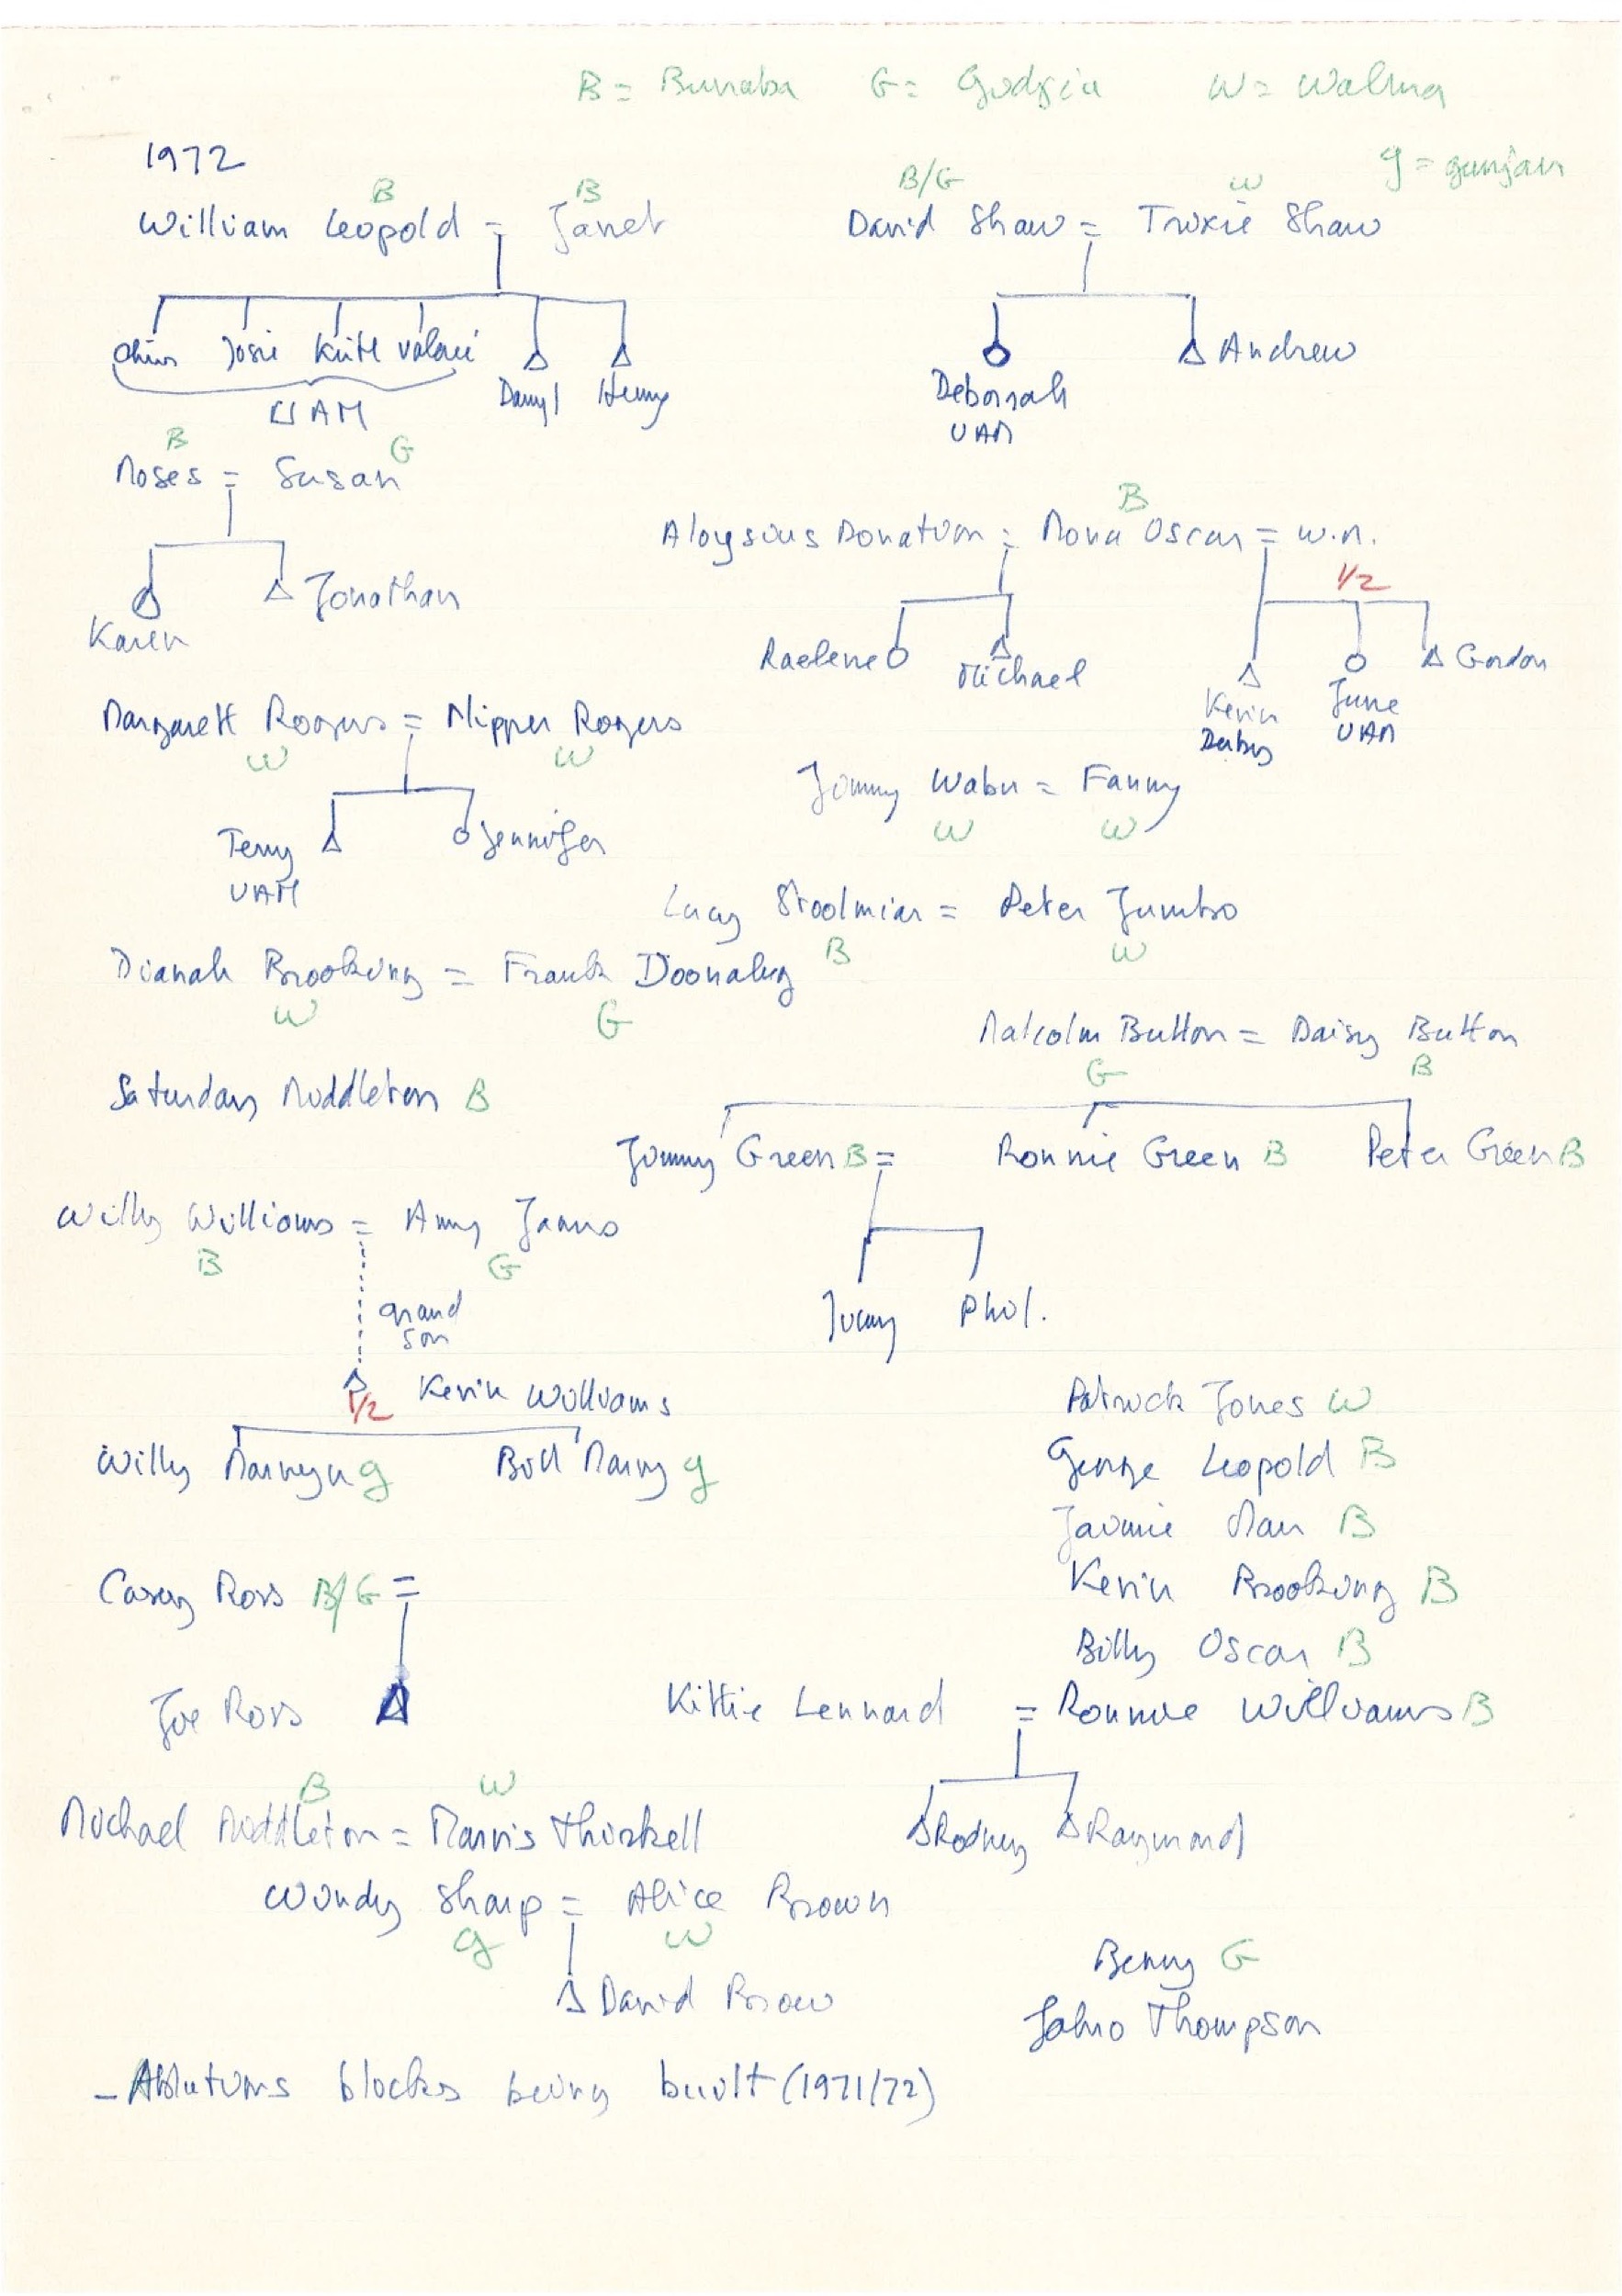 B = Bunaba G = Godgia W = Walma
1972
g = gunjan
B B
William Leopold = Janet
B/G W
David Shaw = Trixie Shaw
Chris Josie Keith Valerie
Daryl Henry
UAM
Andrew
Deborrah
UAM
B G
Moses = Susan
Karen
Jonathan
B
Aloysius Donation = Mona Oscar = w.m.
1/2
Raelene Michael
Kevin June Gordon
Derby UAM
Margarett Rogers = Nipper Rogers
W W
Terry Jennifer
UAM
Jimmy Wabu = Fanny
W W
Lucy = Peter Jumbo
B W
Dianah Brooking = Frank
W G
Malcolm Button = Daisy Button
G B
Saturday Middleton B
Jimmy Green B = Ronnie Green B Peter Green B
Jimmy Phil.
Willy Williams = Amy
B G
grand
son
Kevin Williams
1/2
Willy g Bill g
Patrick Jones W
George Leopold B
B
Kevin Brooking B
Billy Oscar B
Casey Ross B/G =
Joe Ross
Kittie Lennard = Ronnie Williams B
Rodney Raymond
B W
Michael Middleton = Mavis Thirkell
Windy Sharp = Alice Brown
g W
David Brow
Benny G
Thompson
- Ablutions blocks being built (1971/72)